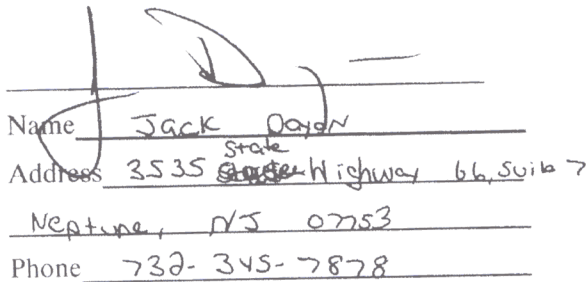 Name Jack Dayan
State
Address 3535 Highway 66, Suite 7
Neptune, NJ 07753
Phone 732-345-7878